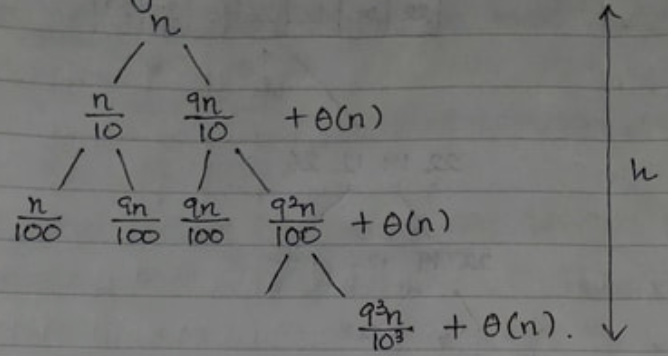 n
n/10 9n/10 + θ(n)
h
n/100 9n/100 9n/100 9²n/100 + θ(n)
9³n/10³ + θ(n).